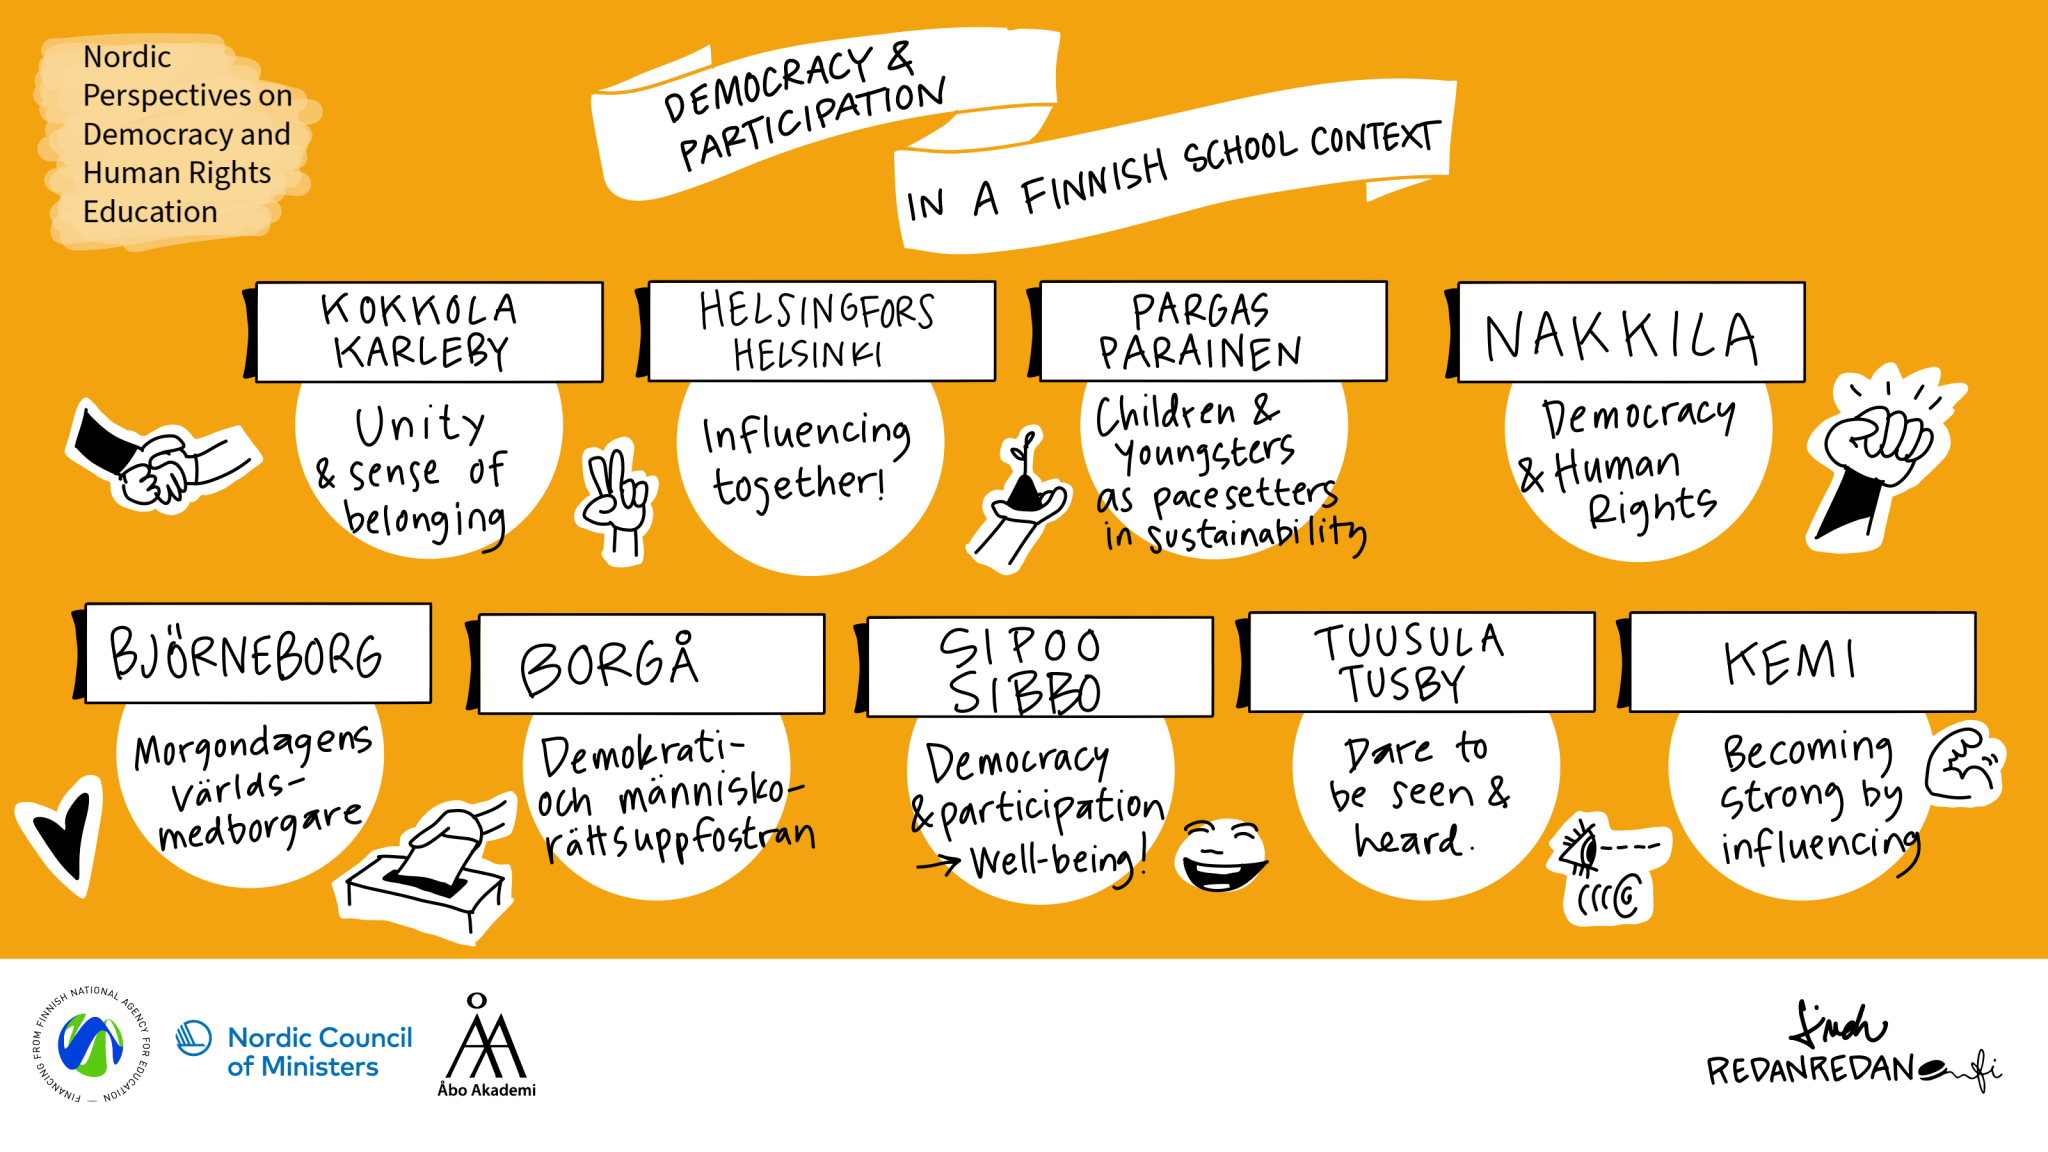 Nordic
Perspectives on
Democracy and
Human Rights
Education
DEMOCRACY &
PARTICIPATION
IN A FINNISH SCHOOL CONTEXT
KOKKOLA
KARLEBY
Unity
& sense of
belonging
HELSINGFORS
HELSINKI
Influencing
together!
PARGAS
PARAINEN
Children &
youngsters
as pacesetters
in sustainability
NAKKILA
Democracy
& Human
Rights
BJÖRNEBORG
Morgondagens
världs-
medborgare
BORGÅ
Demokrati-
och människo-
rättsuppfostran
SIPOO
SIBBO
Democracy
& participation
→ Well-being!
TUUSULA
TUSBY
Dare to
be seen &
heard.
KEMI
Becoming
strong by
influencing
FINANCING FROM FINNISH NATIONAL AGENCY FOR EDUCATION —
Nordic Council
of Ministers
Åbo Akademi
REDANREDAN.fi